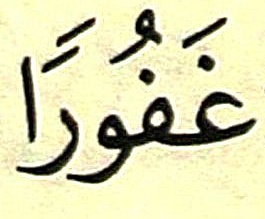 غَفُورًا